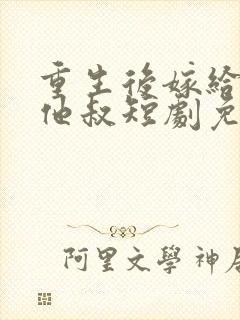 重生後嫁給
他叔短劇免
阿里文學 神居